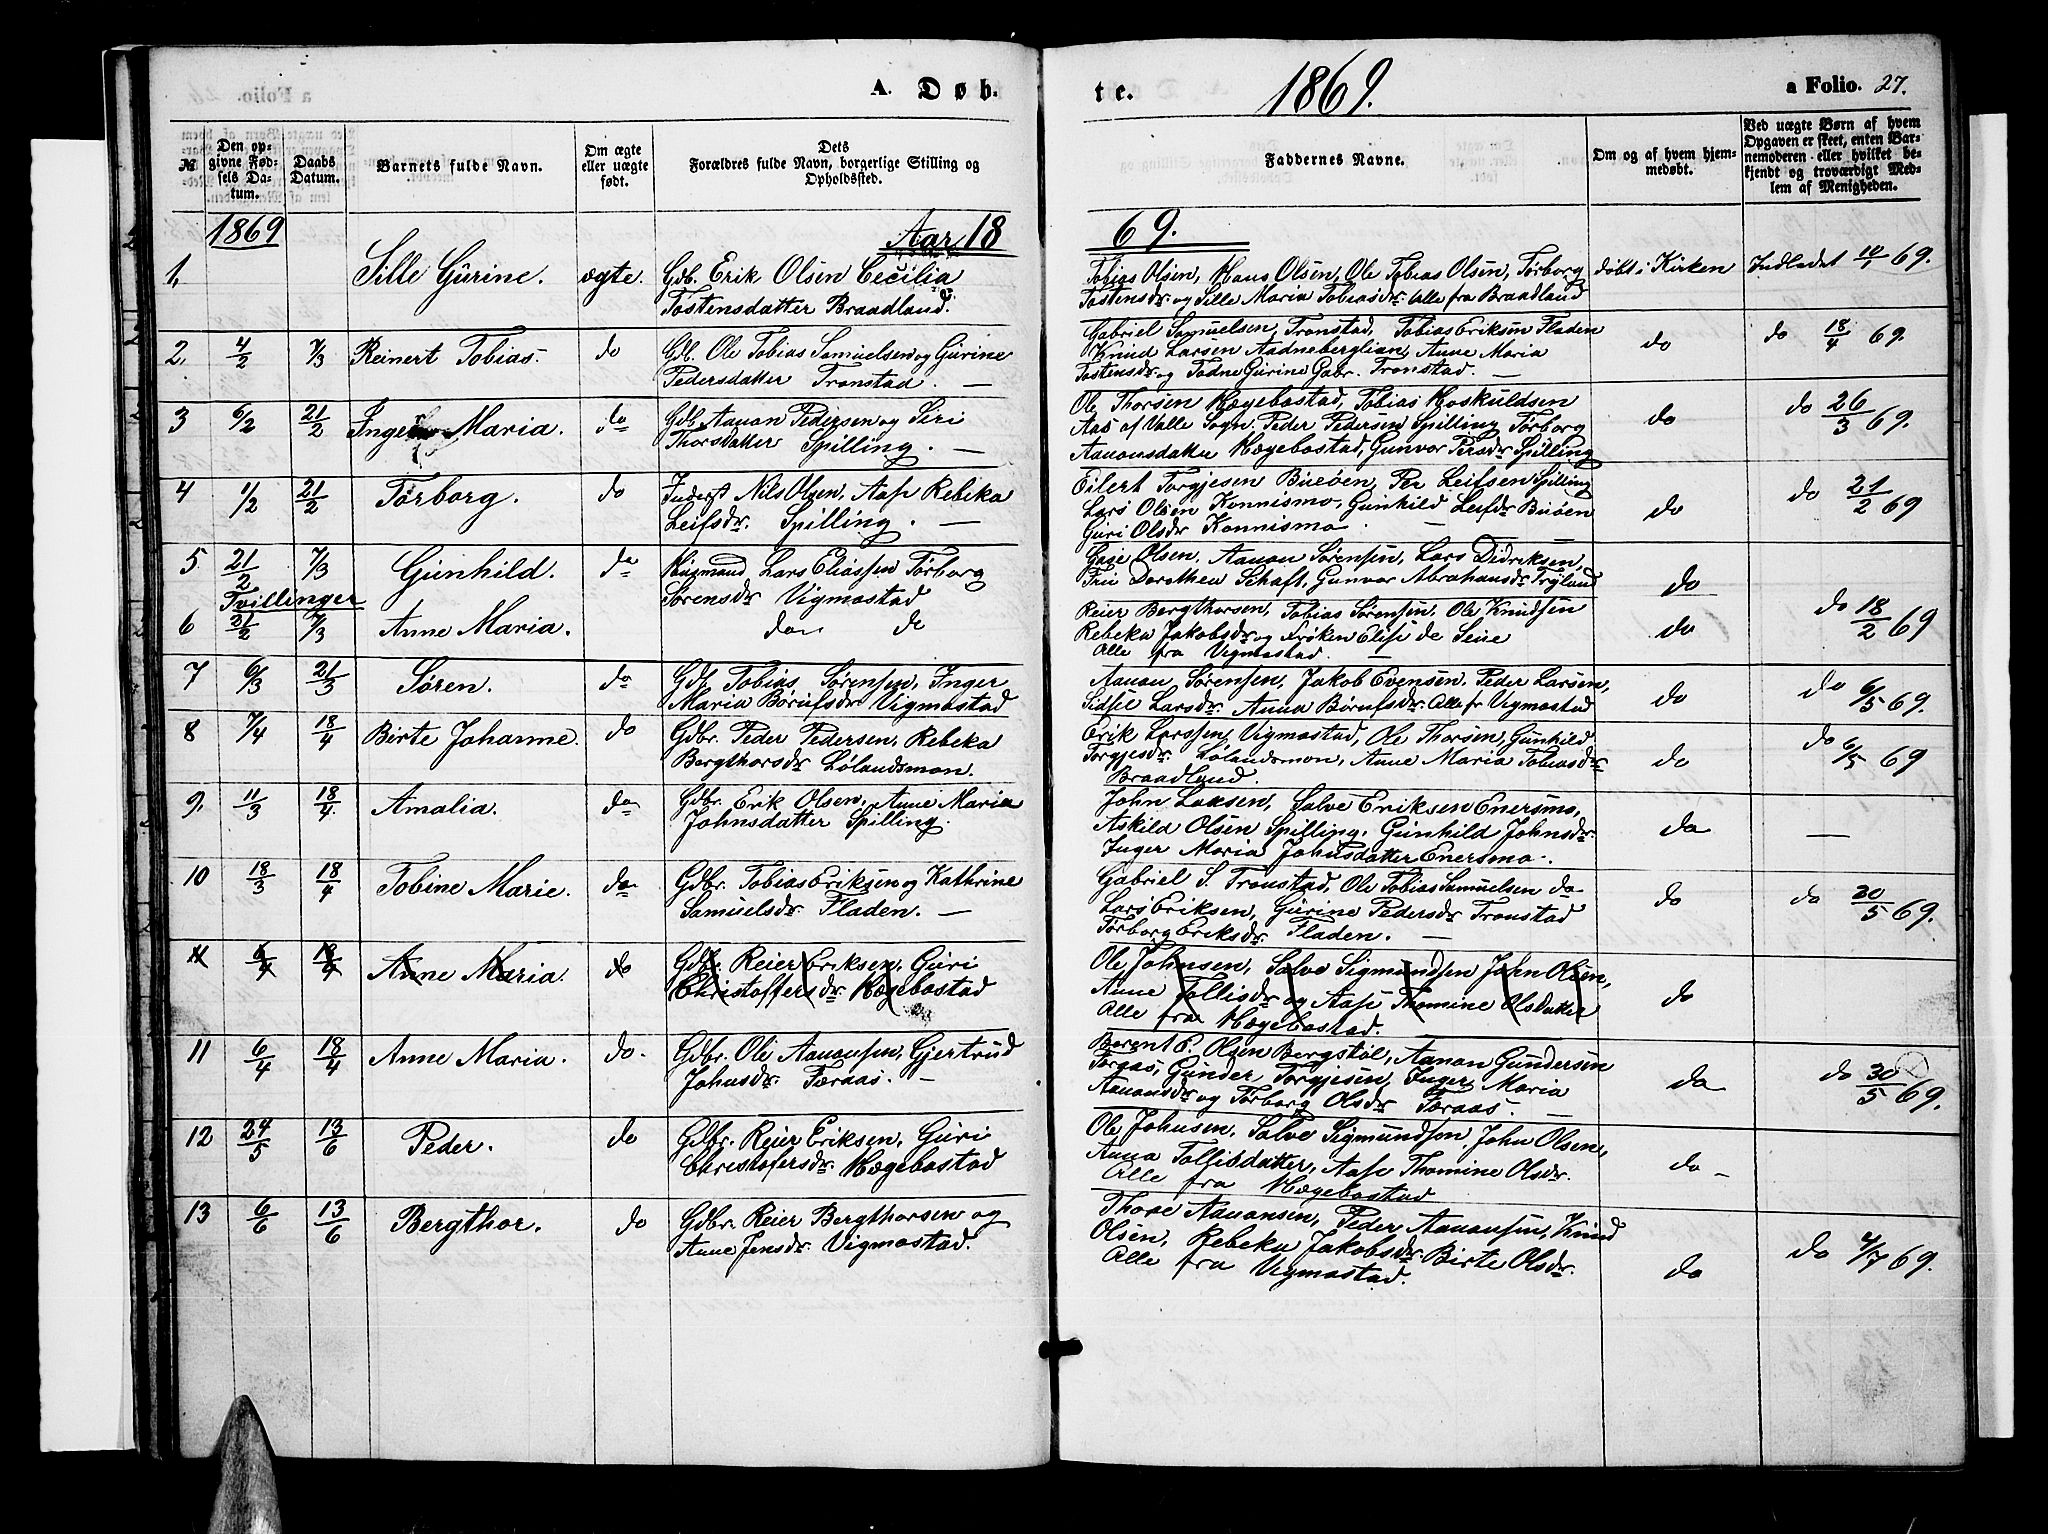 A. Døb-
te.
1869.
a Folio. 27.
№
Den op-
givne Fød-
sels Da-
tum.
Daabs
Datum.
Barnets fulde Navn.
Om ægte
eller uægte
født.
Dets
Forældres fulde Navn, borgerlige Stilling og
Opholdssted.
Faddernes Navne.
Om og af hvem hjem-
medøbt.
Ved uægte Børn af hvem
Opgaven er skeet, enten Bar-
nemoderen eller hvilket be-
kjendt og troværdigt Med-
lem af Menigheden.
1869
Aar 18
69.
1, Sille Gurine. ægte. Gdb. Erik Olsen Cecilia
Tostensdatter Braadland.
Tobias Olsen, Hans Olsen, Ole Tobias Olsen, Torborg
Tostensdr. og Sille Maria Tobiasdr. Alle fra Braadland
døbt i Kirken
Indledet 10/1 69.
2. 4/2 7/3 Reinert Tobias. do Gdb. Ole Tobias Samuelsen og Gurine
Pedersdatter Tronstad. —
Gabriel Samuelsen, Tronstad, Tobias Eriksen Fladen
Knud Larsen Aadneberglian, Anne Maria
Tostensdr. og Tadne Gurine Gabr. Tronstad. —
do
do 18/4 69.
3 6/2 21/2 Inger Maria. do Gdb. Aanon Pedersen og Siri
Thorsdatter Spilling. —
Ole Thorsen Hægebostad, Tobias Hoskuldsen
Aas af Valle Sogn. Peder Pedersen Spilling Torborg
Aanonsdatter Hægebostad, Gunvor Persdr. Spilling
do
do 26/3 69.
4 11/2 21/2 Torborg. do Inderst Nils Olsen, Aase Rebeka
Leifsdr. Spilling. —
Eilert Torgjesen Buøen, Per Leifsen Spilling
Lars Olsen Konnismo, Gunhild Leifsdr. Buøen
Guri Olsdr. Konnismo —
do
do 21/2 69
5 21/2 7/3 Gunhild. do Huusmand Lars Eliassen Torborg
Sørensdr. Vigmostad
Tvillinger
Olsen, Aanon Sørensen, Lars Didriksen,
Dorothea Schaft, Gunvor Abrahamsdr. Trÿland
do
6 21/2 7/3 Anne Maria. do do
Reier Bergthorsen, Tobias Sørensen, Ole Knudsen
Rebeka Jakobsdr. og Frøken Elise de Seue
Alle fra Vigmostad. —
do
do 18/2 69
7 6/3 21/3 Søren. do Gdb. Tobias Sørensen, Inger
Maria Børufsdr. Vigmostad
Aanon Sørensen, Jakob Evensen, Peder Larsen,
Sidsel Larsdr. Anna Børufsdr. Alle fr Vigmostad
do
do 6/5 69.
8 7/4 18/4 Birte Johanne. do Gdbr. Peder Pedersen, Rebeka
Bergthorsdr. Lølandsmon.
Erik Larssen, Vigmostad, Ole Thorsen, Gunhild
Torgjesdr. Lølandsmon, Anne Maria Tobiasdr.
Braadland.
do
do 6/5 69
9. 11/3 18/4. Amalia. do Gdbr. Erik Olsen, Anne Maria
Johnsdatter Spilling.
John Larsen, Salve Eriksen Enersmo,
Askild Olsen Spilling, Gunhild Johnsdr.
Inger Maria Johnsdatter Enersmo.
do
—
10 18/3 18/4 Tobine Marie. do Gdbr. Tobias Eriksen og Kathrine
Samuelsdr. Fladen. —
Gabriel S. Tronstad, Ole Tobias Samuelsen do
Lars Eriksen, Gurine Pedersdr. Tronstad
Torborg Eriksdr. Fladen. —
do
do 30/5 69.
11 6/4 18/4 Anne Maria do Gdbr. Reier Eriksen, Guri
Christoffersdr. Hægebostad
Ole Johnsen, Salve Sigmundsen John Olsen,
Anne Tollisdr. og Aase Thomine Olsdatter
Alle fra Hægebostad.
do
11 6/4 18/4 Anne Maria. do. Gdbr. Ole Aanonsen, Gjertrud
Johnsdr. Færaas. —
Berent P. Olsen Bergstøl, Aanon Gundersen
Færaas, Gunder Torgjesen, Inger Maria
Aanonsdr. og Torborg Olsdr. Færaas. —
do
do 30/5 69.
12 24/5 13/6 Peder. do Gdbr. Reier Eriksen, Guri
Christofersdr. Hægebostad
Ole Johnsen, Salve Sigmundsen, John Olsen,
Anna Tollisdatter, Aase Thomine Olsdr.
Alle fra Hægebostad
do -
13 6/6 13/6 Bergthor. do Gdbr. Reier Bergthorsen og
Anne Jensdr. Vigmostad.
Thore Aanonsen, Peder Aanonsen, Knud
Olsen, Rebeka Jakobsdr. Birte Olsdr.
Alle fra Vigmostad.
do
do 4/7 69.